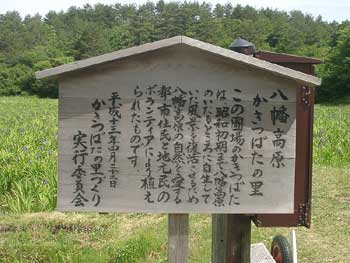 八幡高原
かきつばたの里
この圃場のかきつばた
は、昭和初期まで八幡高原
のいたるところに自生して
いた風景を復活させるため
八幡高原の自然を愛する
都市住民と地元民の
ボランティアにより植え
られたものです。
平成十三年四月二十二日
かきつばたの里づくり
実行委員会